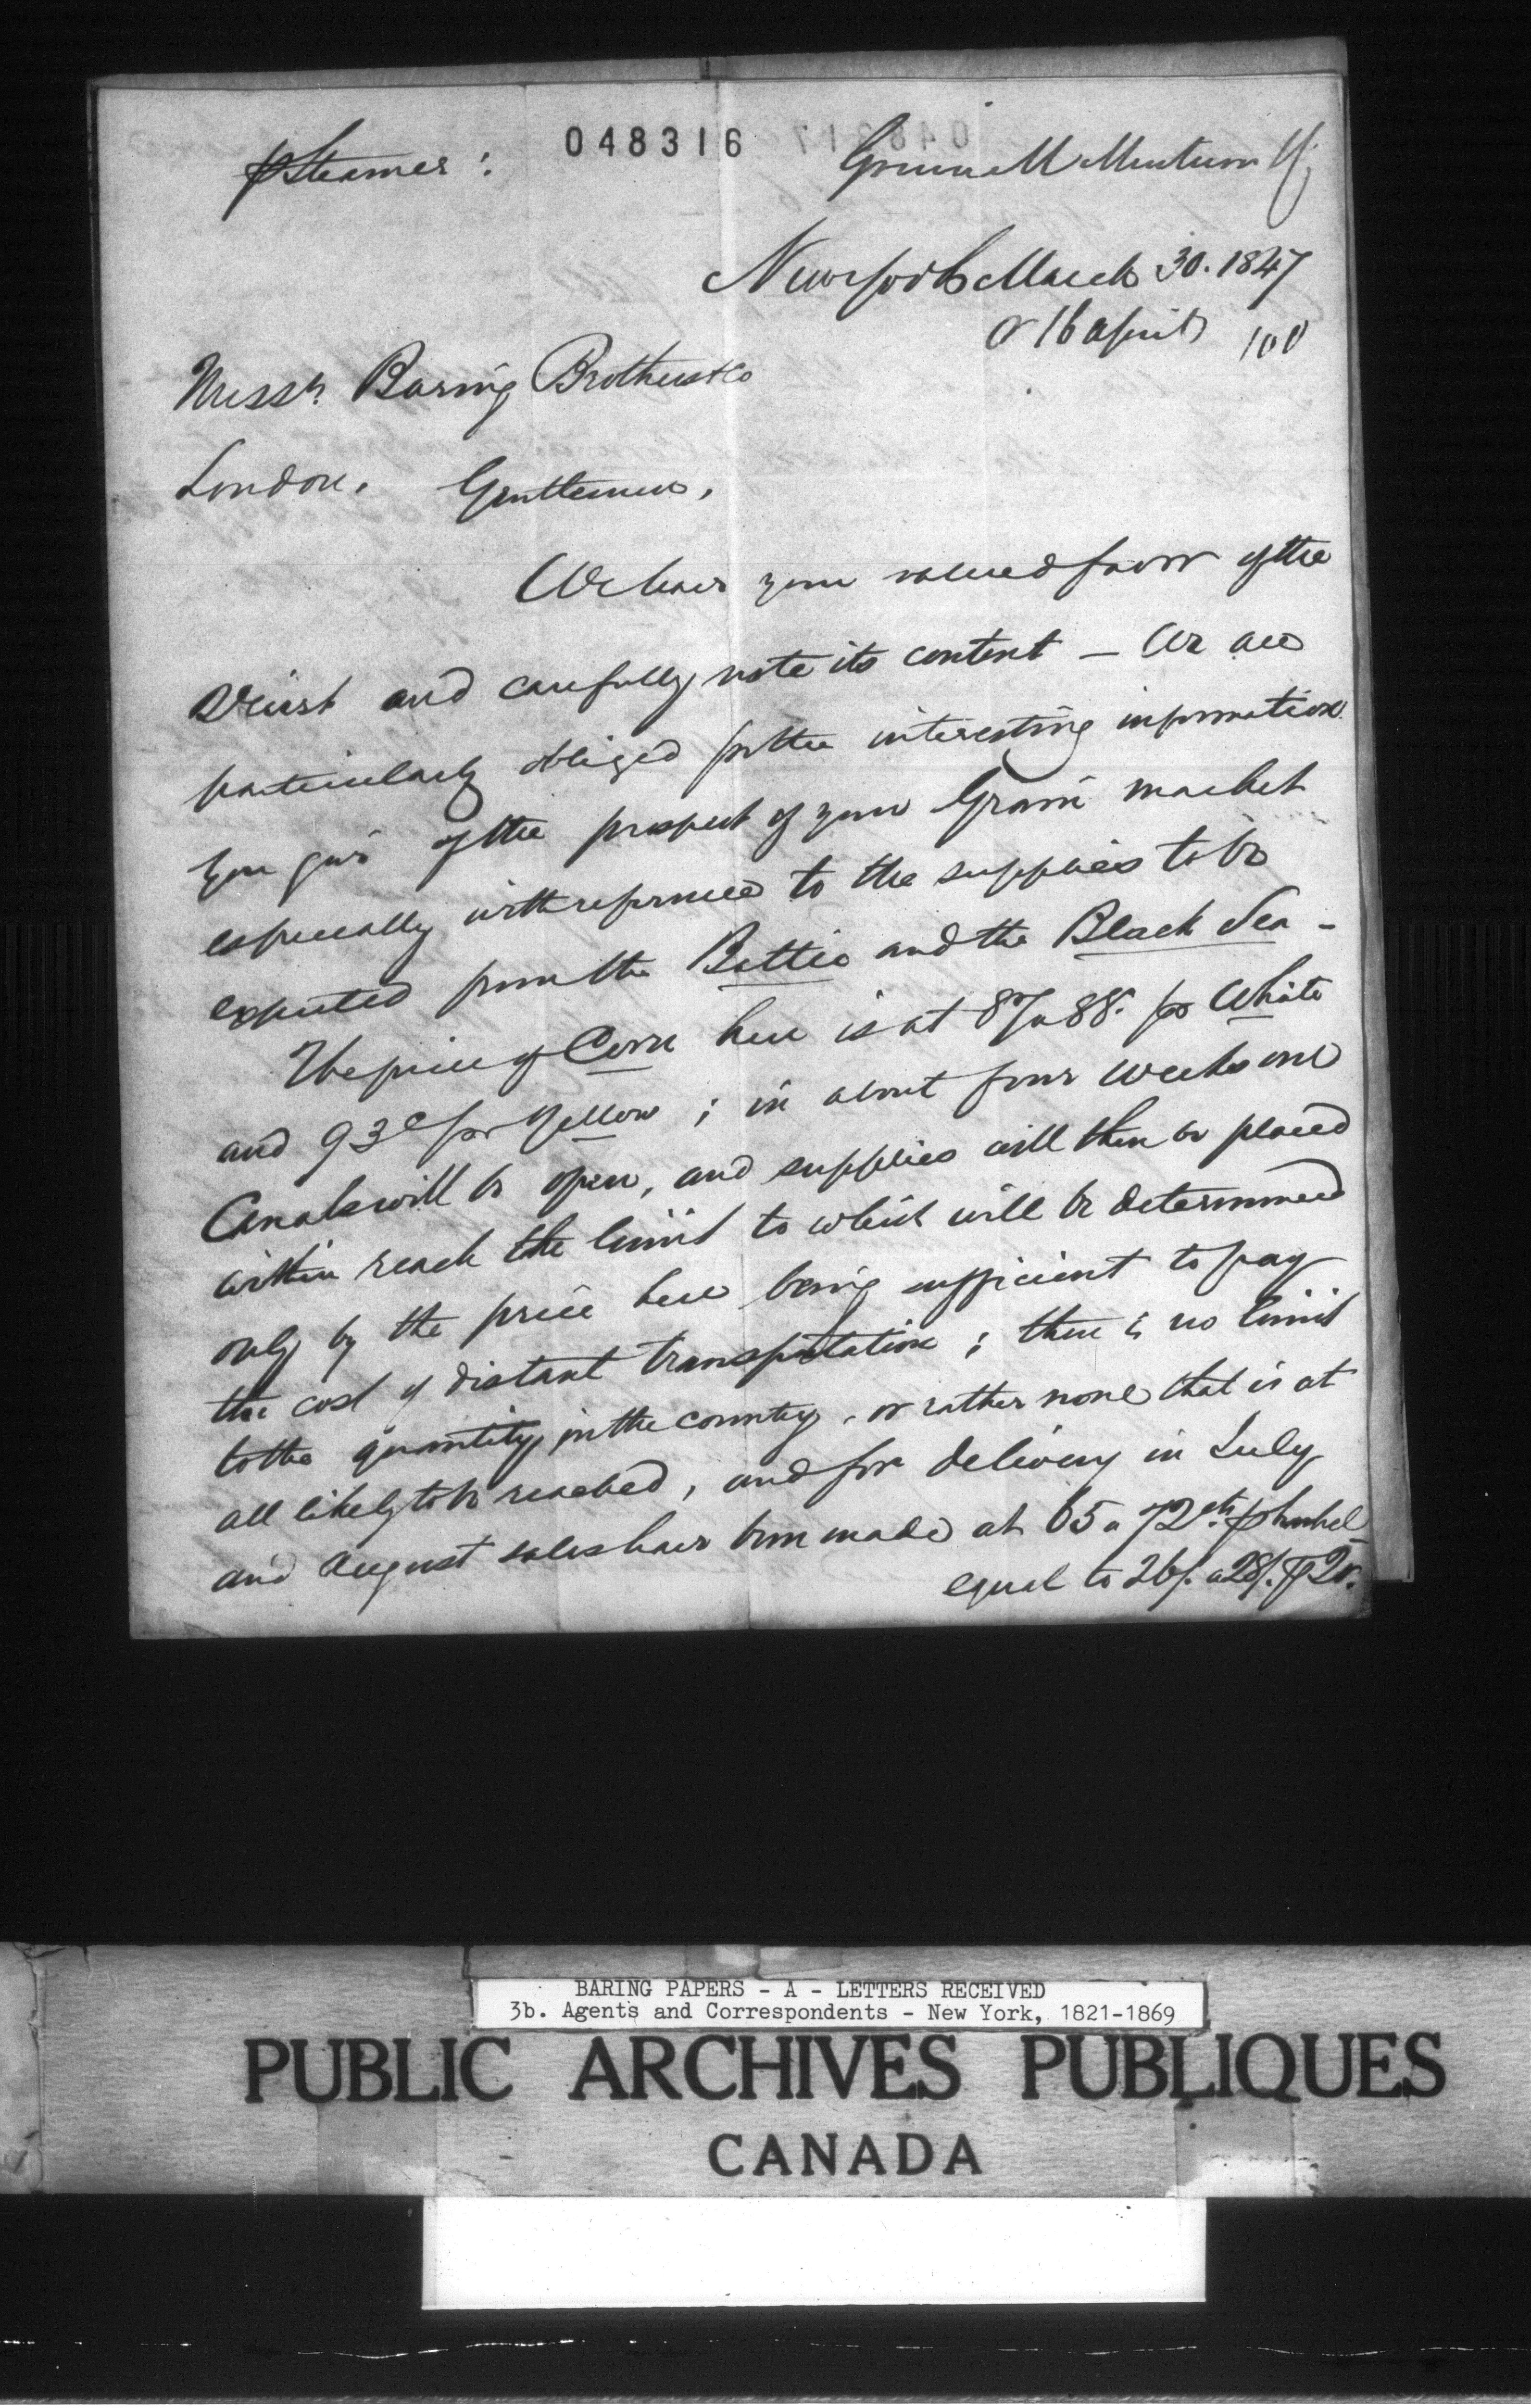 p Steamer:
048316
Grinnell Minturn &
New York March 30. 1847
r 16 april 100
Messrs. Baring Brothers & Co
London. Gentlemen,
We have your valued favor of the
and carefully note its content — We are
particularly obliged for the interesting information
you give of the prospect of your Grain market
especially with reference to the supplies to be
expected from the Baltic and the Black Sea -
The price of Corn here is at 87 a 88. for White
and 93c for Yellow; in about four weeks our
Canals will be open, and supplies will then be placed
within reach the limit to which will be determined
only by the price here being sufficient to pay
the cost of distant transportation; there is no limit
to the quantity in the country, or rather none that is at
all likely to be reached, and for delivery in July
and August sales have been made at 65 a 72 cts p bushel
equal to 26/. a 28/. p Qr.
BARING PAPERS - A - LETTERS RECEIVED
3b. Agents and Correspondents - New York, 1821-1869
PUBLIC ARCHIVES PUBLIQUES
CANADA